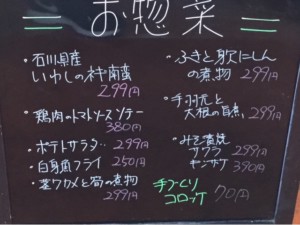 お惣菜
・石川県産
いわしの南蛮
299円
・鶏肉のトマトソースソテー
380円
・ポテトサラダ‥ 299円
・白身魚フライ 250円
・茎ワカメと筍の煮物
299円
・ふきと身欠にしん
の煮物 299円
・手羽元と
大根の旨煮 299円
・みそ漬焼
サワラ 299円
ギンザケ 390円
手づくり
コロッケ 70円